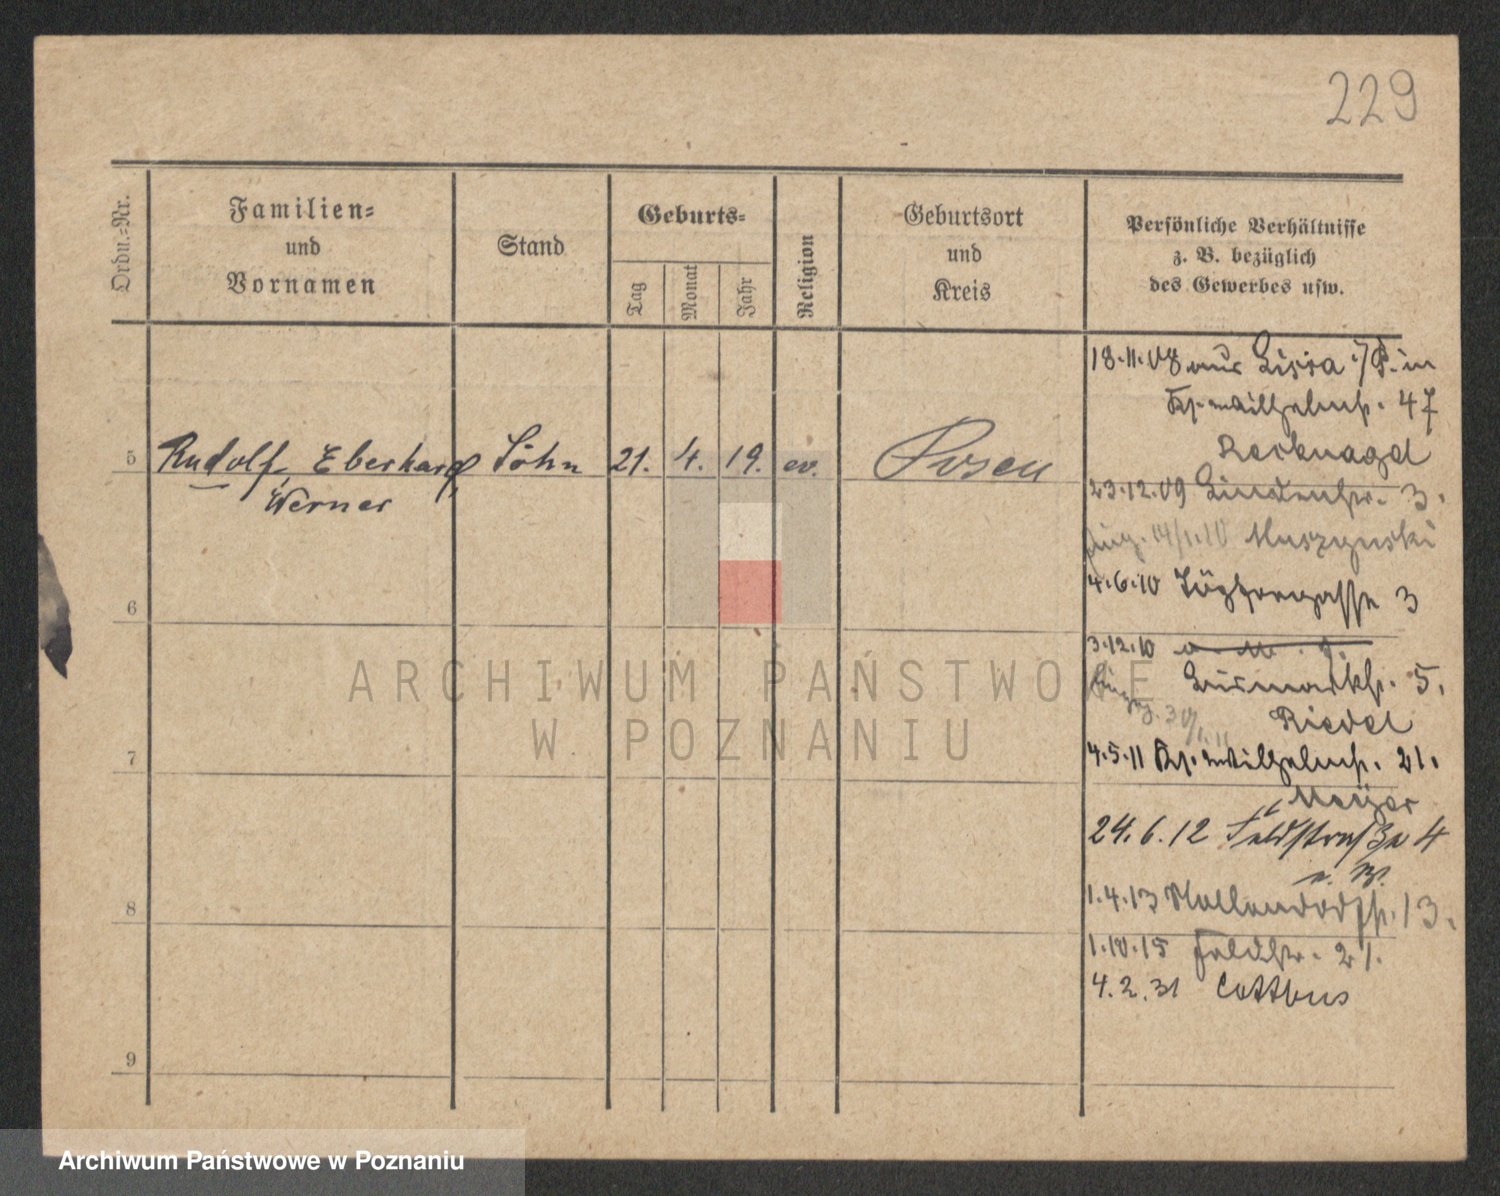 229
Ordn.-Nr.
Familien-
und
Vornamen
Stand
Geburts-
Tag
Monat
Jahr
Religion
Geburtsort
und
Kreis
Persönliche Verhältnisse
z. B. bezüglich
des Gewerbes usw.
5 Rudolf, Eberhard, Sohn 21. 4. 19. ev. Posen
Werner
6
7
8
9
18.11.08 aus Lissa i/P. in
Kr. Wilhelmstr. 47
Recknagel
23.12.09 Lindenstr. 3.
14/1.10 Muszynski
4.6.10 Töpfergasse 3
3.12.10
5.
Riedel
4.5.11 Kr. Wilhelmstr. 21.
Meyer
24.6.12 Feldstraße 4
1.4.13 Hollendorfstr. 13.
1.10.15 Feldstr. 21.
4.2.31 Cottbus
ARCHIWUM PAŃSTWOWE
W POZNANIU
Archiwum Państwowe w Poznaniu